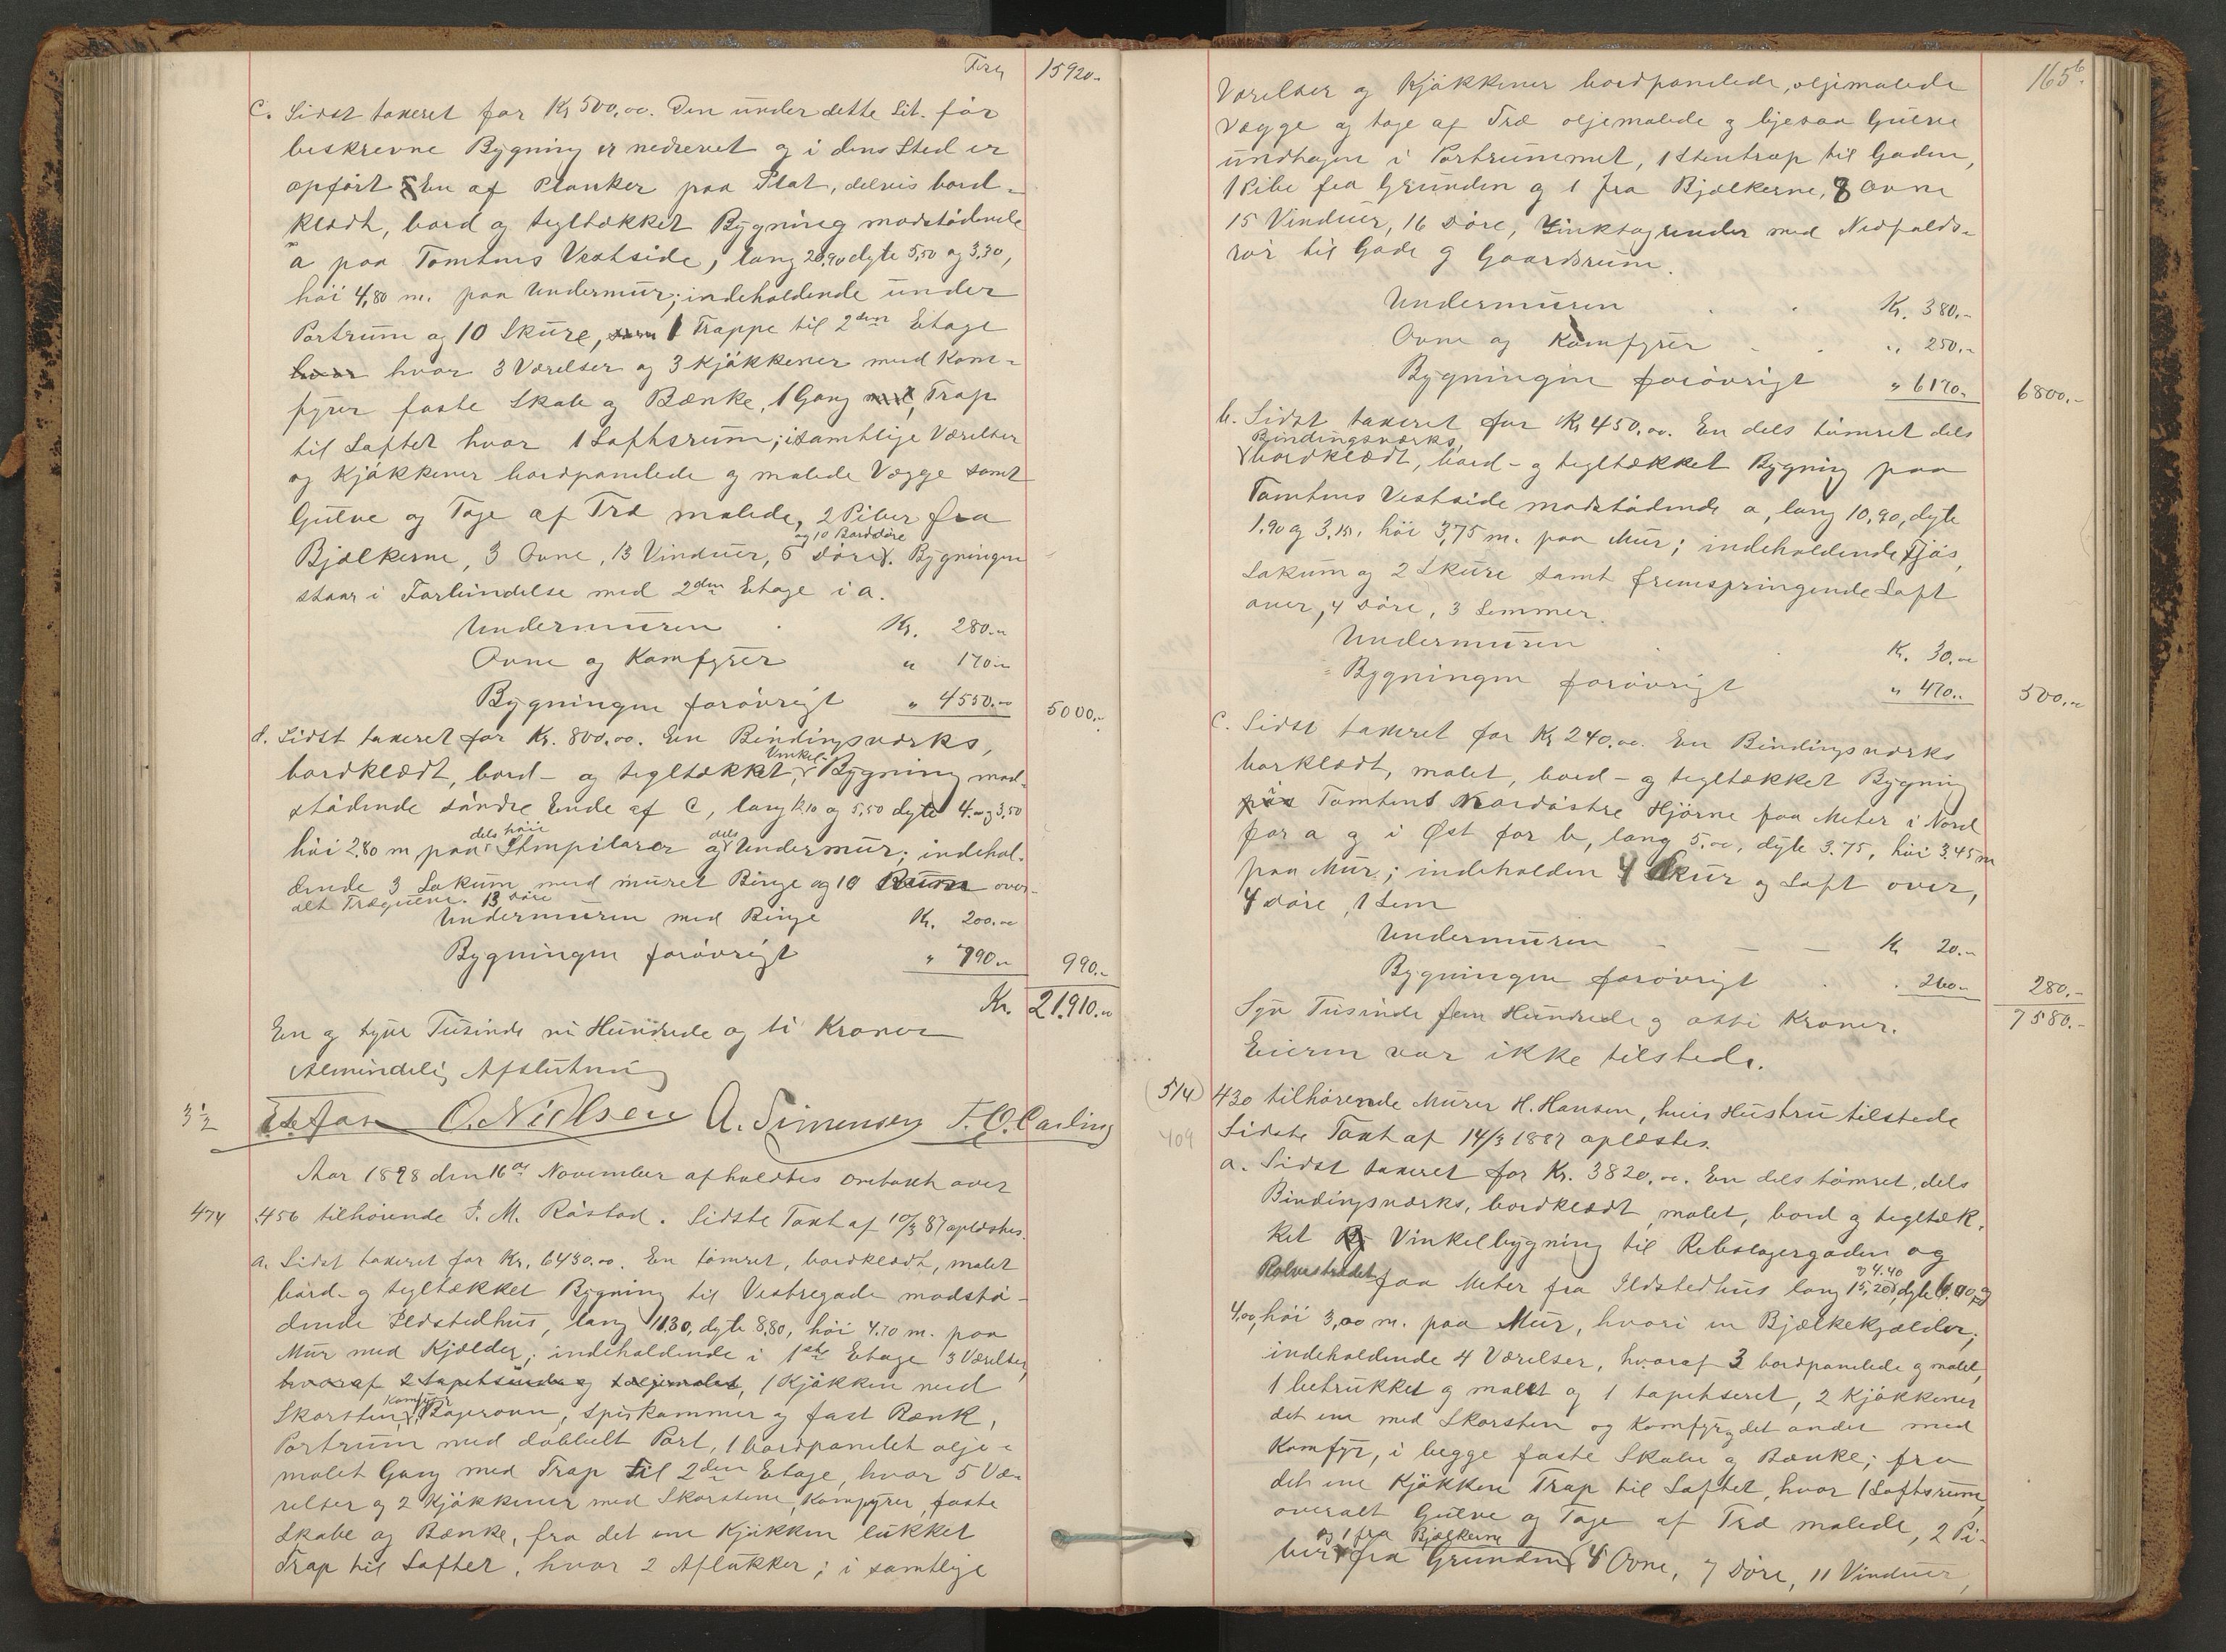 15920.-
C. Sidst taxeret for Kr 500,00. Den under dette Lit. før
beskrevne Bygning er nedrevet og i dens Sted er
opført En af Planker paa Plat, delvis bord-
klædt, bord og tegltækket Bygning modstødende
a paa Tomtens Vestside, lang 20,90 dybe 5,50 og 3,30,
høi 4,80 m. paa Undermur; indeholdende under
Portrum og 10 Skure, 1 Trappe til 2den Etage
hvor hvor 3 Værelser og 3 Kjøkkener med Kom-
fyrer faste Skabe og Bænke, 1 Gang med, Trap
til Loftet hvor 1 Loftsrum; i samtlige Værelser
og Kjøkkener bordpanelede og malede Vægge samt
Gulve og Tage af Træ malede, 2 Piber fra
og 10 Borddøre
Bjælkerne, 3 Ovne, 13 Vinduer, 5 Døre. Bygningen
staar i Forbindelse med 2den Etage i a.
Undermuren . Kr. 280.-
Ovne og Komfyrer " 170.-
Bygningen forøvrigt " 4550.- 5000.-
d. Sidst taxeret for Kr. 800,00. En Bindingsværks,
Vinkel-
bordklædt, bord- og tegltækket, Bygning mod-
stødende søndre Ende af C, lang 12.10 og 5,50 dybe 4.00 og 3,50
dels høie dels
høi 2.80 m paa Stenpilarer og Undermur; indehol-
dende 3 Lokum med muret Binge og 10 Rum over-
alt Trægulve. 13 Døre
Undermuren med Binge Kr. 200.00
Bygningen forøvrigt " 790.- 990.-
Kr. 21.910.00
En og tyve Tusinde ni Hundrede og ti Kroner
Almindelig Afslutning
3 1/2 O. Nielsen A. Simensen F. O. Carling
Aar 1898 den 16de November afholdtes Omtaxt over
474 456 tilhørende J. M. Råstad. Sidste Taxt af 10/3 87 oplæstes.
a. Sidst taxeret for Kr. 6430.00. En tømret, bordklædt, malet
bord- og tegltækket Bygning til Vestregade modstø-
dende Ildstedhus, lang 11.30, dybe 8.80, høi 4.70 m. paa
Mur med Kjælder; indeholdende i 1ste Etage 3 Værelser,
hvoraf 2 tapetserede og 1 oljemalet, 1 Kjøkken med
Komfyr
Skorsten, Bagerovn, Spiskammer og fast Bænk,
Portrum med dobbelt Port, 1 bordpanelet olje-
malet Gang med Trap til 2den Etage, hvor 5 Væ-
relser og 2 Kjøkkener med Skorstene, Komfyrer, faste
Skabe og Bænke, fra det ene Kjøkken lukket
Trap til Loftet, hvor 2 Aflukker; i samtlige
165b.
Værelser og Kjøkkener bordpanelede, oljemalede
Vægge og tage af Træ oljemalede og ligesaa Gulve
undtagen i Portrummet, 1 Stentrap til Gaden,
1 Pibe fra Grunden og 1 fra Bjælkerne, 8 Ovne
15 Vinduer, 16 Døre, Zinktagrender med Nedfalds-
rør til Gade og Gaardsrum.
Undermuren . . Kr. 380.-
Ovne og Komfyrer - . " 250.-
Bygningen forøvrigt " 6170.- 6800.-
b. Sidst taxeret for Kr 450.00. En dels tømret dels
Bindingsværks,
bordklædt, bord- og tegltækket Bygning paa
Tomtens Vestside modstødende a, lang 10,90, dybe
1.90 og 3.15, høi 3,75 m. paa Mur; indeholdende Fjøs,
Lokum og 2 Skure samt fremspringende Loft
over, 4 Døre, 3 Lemmer.
Undermuren . . Kr. 30.00
Bygningen forøvrigt " 470.- 500.-
C. Sidst taxeret for Kr 240.00. En Bindingsværks
borklædt, malet, bord- og tegltækket Bygning
paa Tomtens Nordøstre Hjørne faa Meter i Nord
for a og i Øst for b, lang 5.00, dybe 3.75, høi 3.45 m
paa Mur; indeholden 4 Skur og Loft over,
4 Døre, 1 Lem
Undermuren - - - Kr 20.-
Bygningen forøvrigt . . 260- 280.-
Syv Tusinde fem Hundrede og otti Kroner. 7580.-
Eieren var ikke tilstede.
(514) 430 tilhørende Murer H. Hansen, hvis Hustru tilstede
409 Sidste Taxt af 14/3 1887 oplæstes.
a. Sidst taxeret for Kr. 3820.00. En dels tømret, dels
Bindingsværks, bordklædt, malet, bord og tegltæk-
ket Vinkelbygning til Rebslagergaden og
og 4.40
Rolvsstrædet faa Meter fra Ildstedhus lang 15,20, dybe 6.00 og
4,00, høi 3,00 m. paa Mur, hvori en Bjælkekjælder;
indeholdende 4 Værelser, hvoraf 3 bordpanelede og malet,
1 betrukket og malet og 1 tapetseret, 2 Kjøkkener
det ene med Skorsten og Komfyr, det andet med
Komfyr, i begge faste Skabe og Bænke; fra
det ene Kjøkken Trap til Loftet, hvor 1 Loftsrum,
overalt Gulve og Tage af Træ malede, 2 Pi-
og 1 fra Bjælkerne
ber fra Grunden, 4 Ovne, 7 Døre, 11 Vinduer,